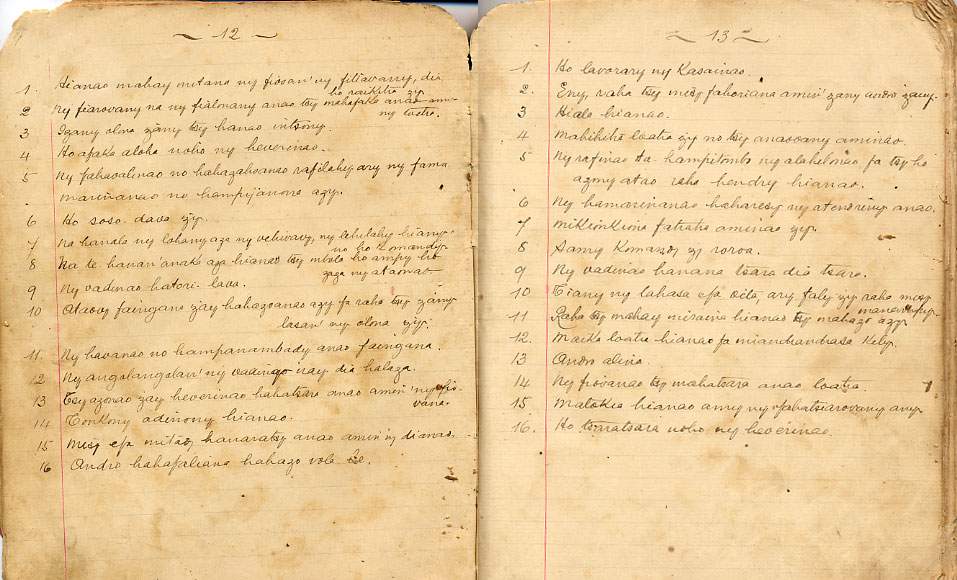 ~ 12 ~
1. Hianao mahay mitana ny fiosan' ny fitiavanny, dia
ho raikitra zy.
2 Ny fiarovany na ny fialonany anao tsy mahafaka anao amin
ny tsotro.
3 Izany olona zany tsy hanao intsony.
4 Ho afake aloha noho ny heverinao.
5 Ny fahavalinao no hahazahoanao rafilahy ary ny fama
mariñanao no hampijanona azy.
6 Ho soso dava zy.
7 Na hanala ny lohany aza ny vehivavy, ny lehilahy hiany
no ho komandy.
8 Na te hanan' anake aza hianao tsy mbola ho ampy ho
zaza ny ataonao
9 Ny vadinao hatori lava.
10 Ataovy faingana zay hahazoanao azy fa raha tsy zany
lasan' ny olona zy.
11 Ny havanao no hampanambady anao faingana.
12 Ny angolangolan' ny vadinao izay dia halaza.
13 Tsy azonao zay heverinao hahatsara anao amin' ny fio-
vana.
14 Tonkony adinony hianao.
15 Misy efa mitady hanaratsy anao amin' ny dianao.
16 Andro hahafaliana hahazo vola be.
~ 13 ~
1. Ho lavorary ny Kasainao.
2. Eny, raha tsy misy fahoriana amin' zany andro zany.
3 Hialo hianao.
4 Mahihitra loatra zy no tsy anaovany aminao.
5 Ny rafinao ka hampitombo ny alahelonao fa tsy ho
azony atao raha hendry hianao.
6 Ny hamarinanao haharesy ny atendriny anao.
7 mikionkiona fatratra aminao zy.
8 Samy Komandy zy roroa.
9 Ny vadinao hanana tsara dia tsara.
10 Tiany ny lahasa efa vita, ary faly zy raha misy
manampy.
11 Raha tsy mahay misaina hianao tsy mahazo azy.
12. Maika loatra hianao fa miandrandrasa Kely.
13 Andro alina
14 Ny fiovanao tsy mahatsara anao loatra.
15 Matokia hianao amy ny fahatsiarovany any.
16. Ho tsaratsara noho ny heverinao.